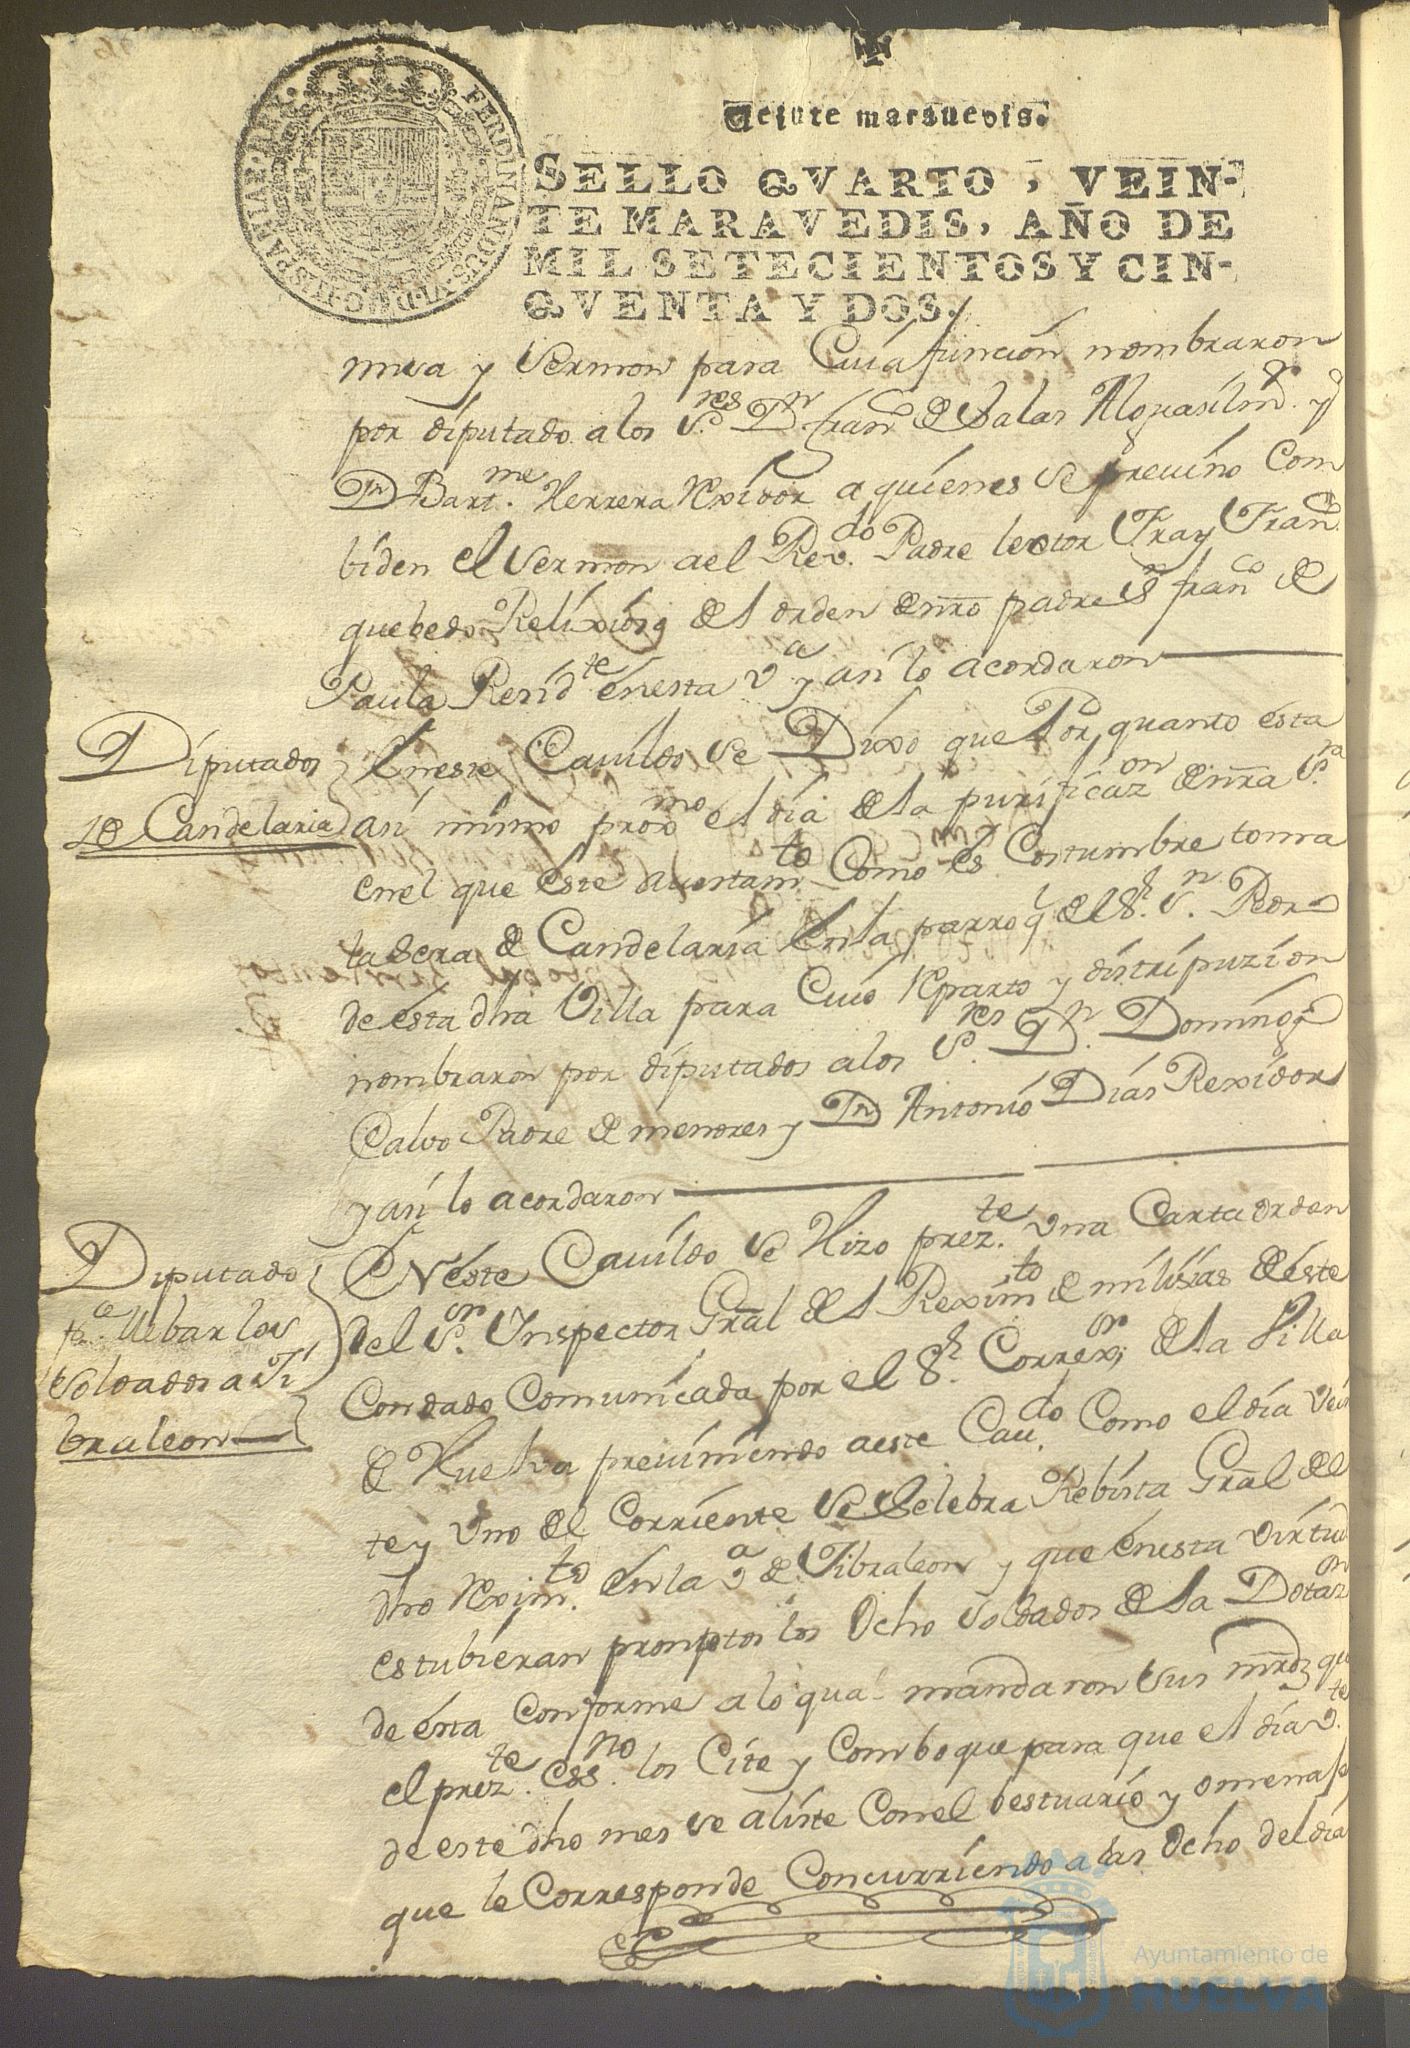 Veinte maravedis.
SELLO QVARTO, VEIN-
TE MARAVEDIS, AÑO DE
MIL SETECIENTOS Y CIN-
QVENTA Y DOS.
FERDINANDUS.VI.D.G.HISPANIAR.REX.
y Sermon para Cuia funcion nombraron
por diputado a los S.res Dn Fran.co de Salas Alguasil m.r y
Dn Bart.me Herrera Rexidor a quienes se preuino Com
biden el Sermon a el Rev.do Padre lector Fray Fran.co
quebedo Relixioso del orden de nro padre Sn Fran.co de
Paula Resid.te en esta v.a y asi lo acordaron
Diputados
de Candelaria
En este Cauildo se Dixo que Por quanto esta
asi mismo prox.mo el dia de la purificaz.on de nra S.ra
en el que este Auontam.to Como es Costumbre toma
la Sera de Candelaria en la parroq.l del S.r Sn. Pedro
de esta dha Villa para Cuio Reparto y distripuzion
nombraron por diputados a los S.res Dn. Domingo
Calvo Padre de menores y Dn Antonio Dias Rexidor
y asi lo acordaron
Diputado
p.a llebar los
Soldados a Ji
braleon
En este Cauildo se Hizo prez.te una Carta orden
del S.or Ynspector Gral del Rexim.to de milisias de este
Condado Comunicada por el S.r Correx.or de la Villa
de Huelva preuiniendo a este Cau.do Como el dia vein
te y uno del Corriente se Selebra Rebista Gral del
dho Rexim.to en la v.a de Jibraleon y que en esta virtud
estubieran promptos los Ocho Soldados de la Dotaz.on
de esta Conforme a lo qual mandaron Sus mrds que
el prez.te Ess.no los Cite y Comboque para que el dia v.te
de este dho mes se aliste Con el bestuario y omenaje
que le Corresponde Concurriendo a las Ocho del dia
Ayuntamiento de
HUELVA